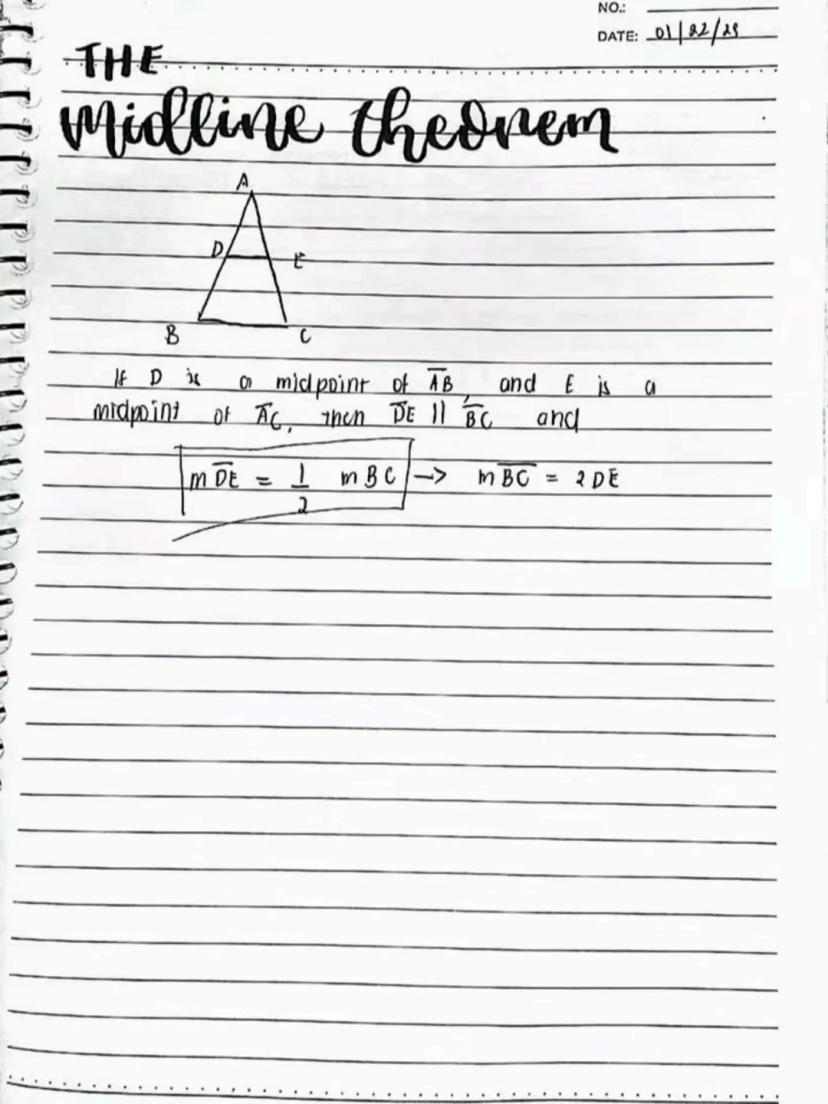 NO.:
DATE: 01/22/25
THE
midline theorem
A
D E
B C
If D is a midpoint of A̅B̅, and E is a
midpoint of A̅C̅, then D̅E̅ || B̅C̅ and
m D̅E̅ = 1/2 m BC -> m B̅C̅ = 2 DE